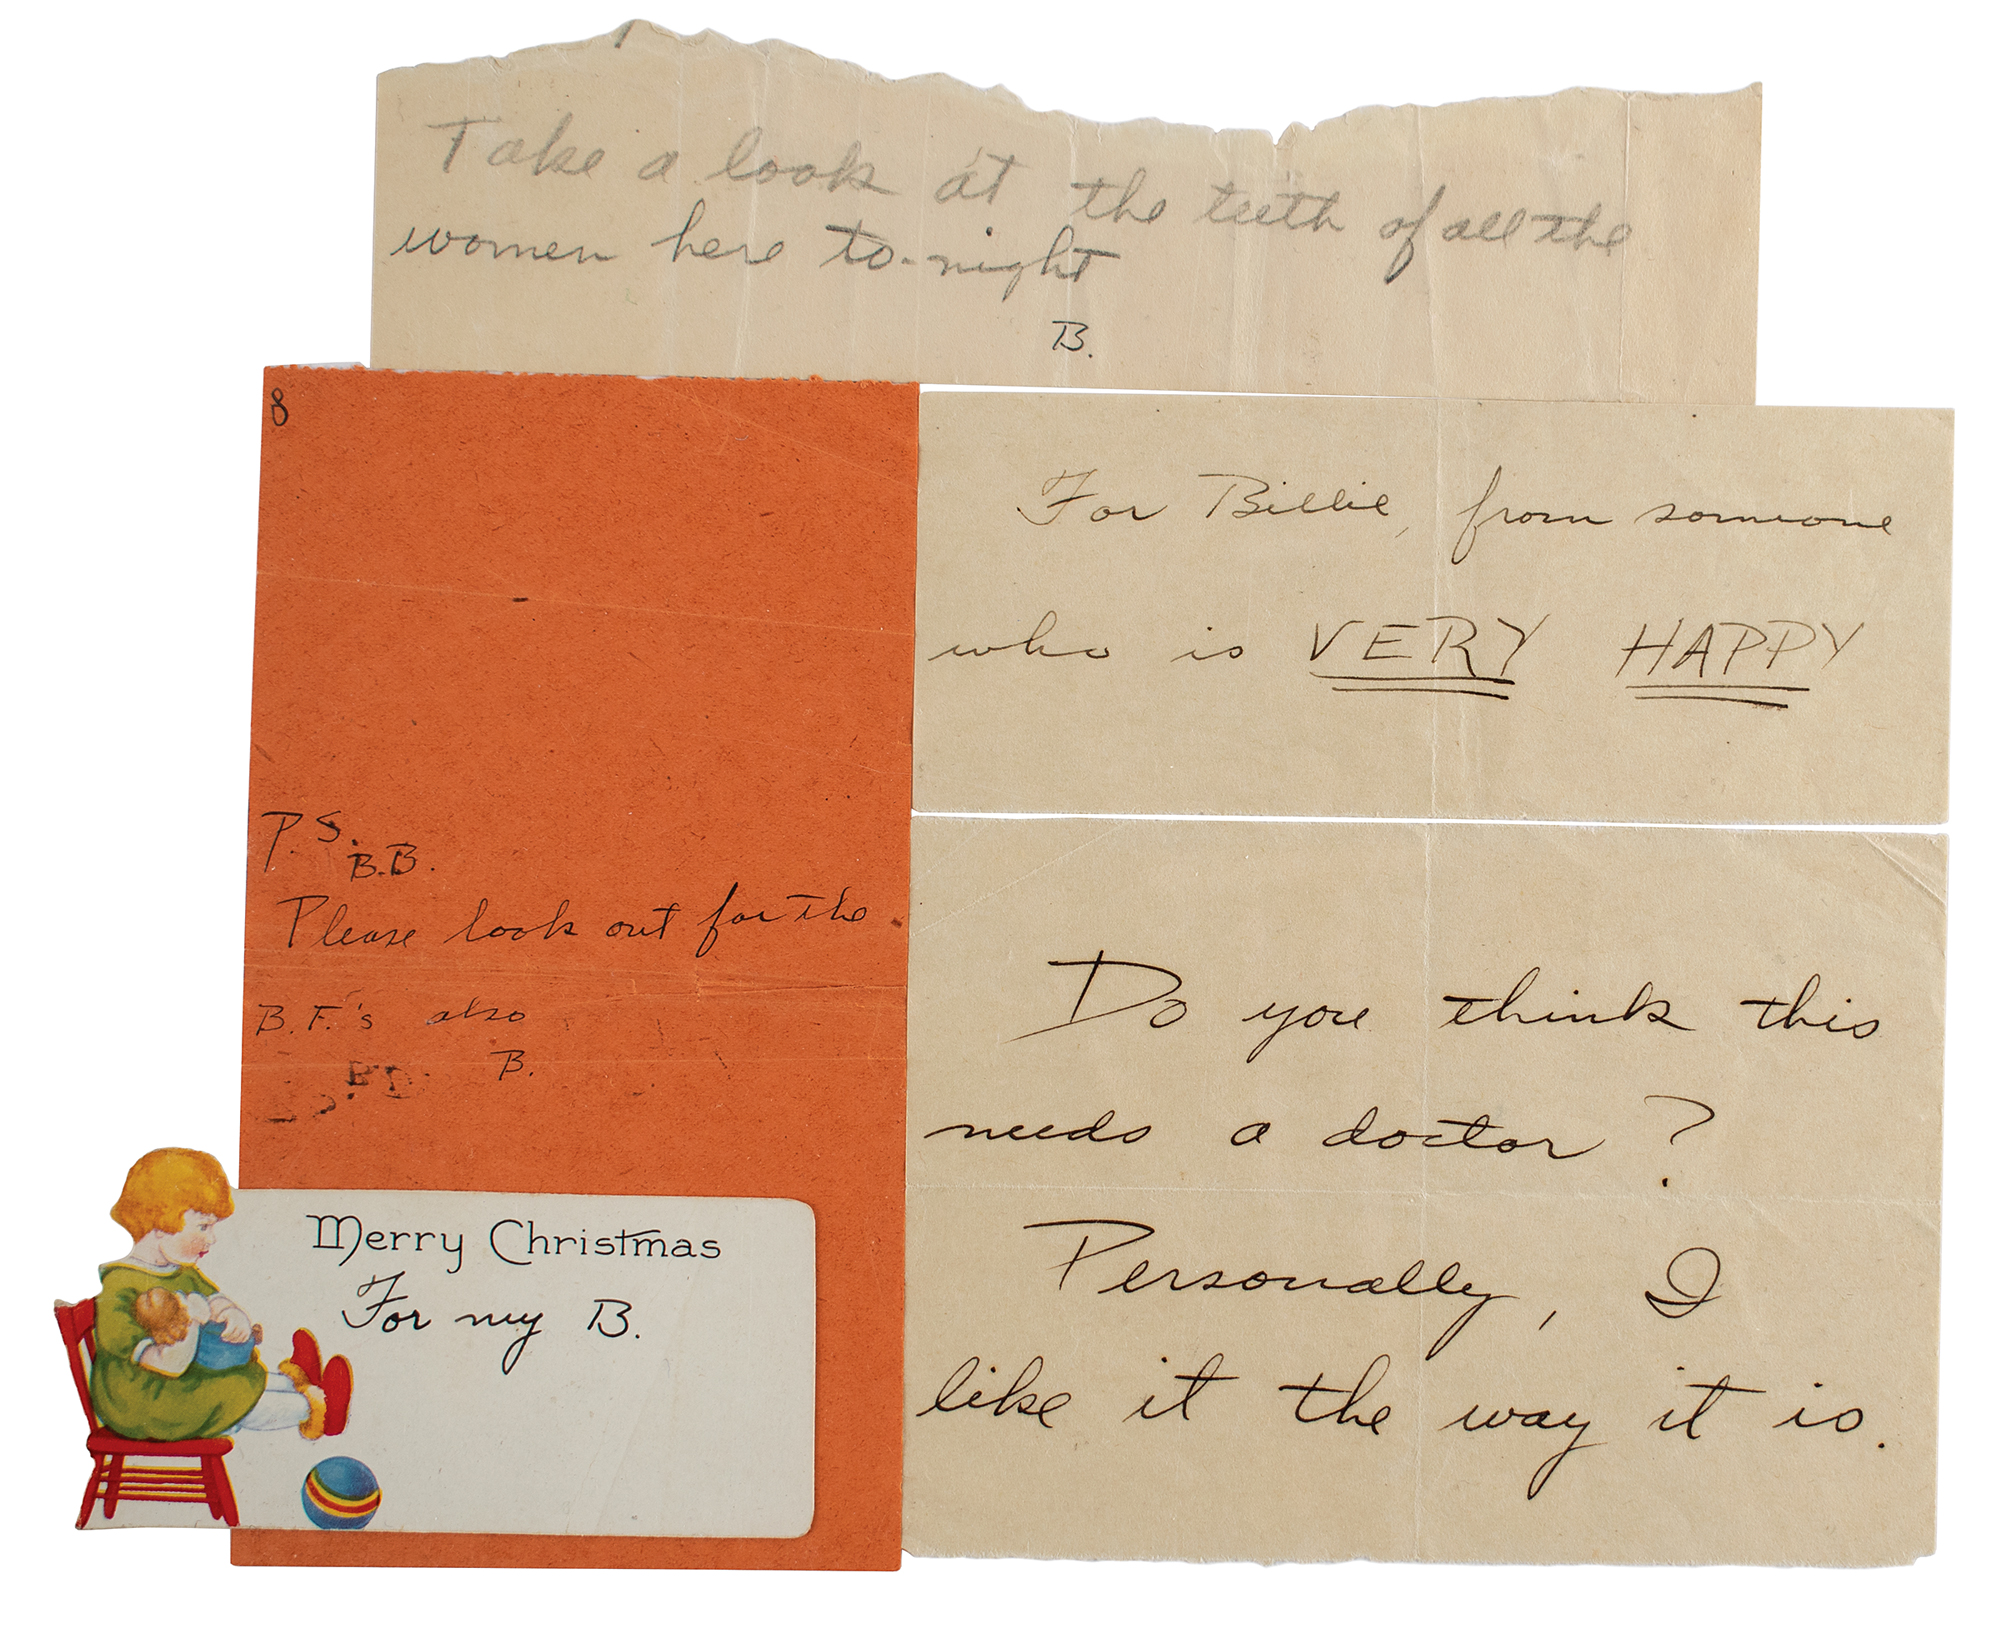 Take a look at the teeth of all the
women here to-night
B.
8
P.S.
B.B.
Please look out for the
B.F.'s also
B.
Merry Christmas
For my B.
For Billie, from someone
who is VERY HAPPY
Do you think this
needs a doctor?
Personally, I
like it the way it is.